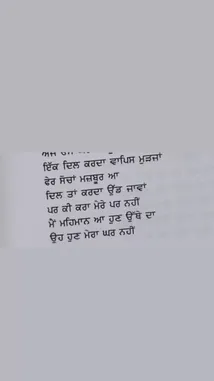 ਇੱਕ ਦਿਲ ਕਰਦਾ ਵਾਪਿਸ ਮੁੜਜਾਂ
ਫੇਰ ਸੋਚਾਂ ਮਜ਼ਬੂਰ ਆ
ਦਿਲ ਤਾਂ ਕਰਦਾ ਉੱਡ ਜਾਵਾਂ
ਪਰ ਕੀ ਕਰਾ ਮੇਰੇ ਪਰ ਨਹੀਂ
ਮੈਂ ਮਹਿਮਾਨ ਆ ਹੁਣ ਉੱਥੇ ਦਾ
ਉਹ ਹੁਣ ਮੇਰਾ ਘਰ ਨਹੀਂ